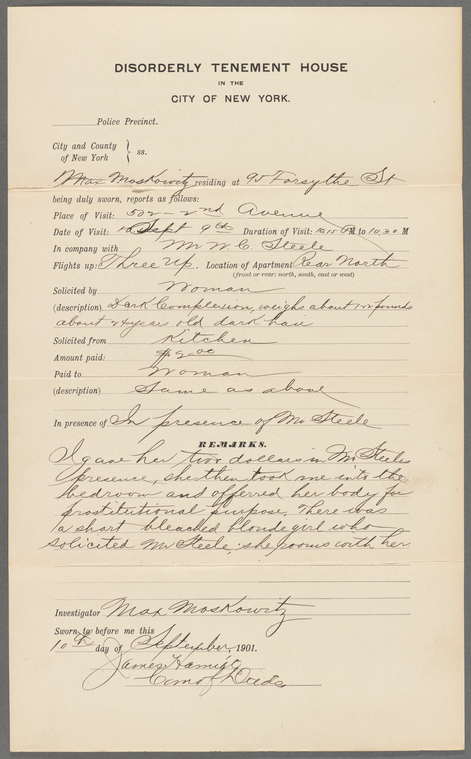 DISORDERLY TENEMENT HOUSE
IN THE
CITY OF NEW YORK.
Police Precinct.
City and County
of New York } ss.
Max Moskowitz residing at 95 Forsythe St
being duly sworn, reports as follows:
Place of Visit: 502 - 2nd Avenue
Date of Visit: Sept 9th Duration of Visit: 10.15 PM to 10.30 M
In company with Mr W. C. Steele
Flights up: Three Up. Location of Apartment Rear North
(front or rear: north, south, east or west)
Solicited by Woman
(description) Dark Complexion, weighs about pounds
about 24 year old dark hair
Solicited from Kitchen
Amount paid: $2.00
Paid to Woman
(description) Same as above
In presence of In presence of Mr Steele
REMARKS.
I gave her two dollars in Mr. Steeles
presence, she then took me into the
bedroom and offerred her body for
prostitutional purpose, There was
a short bleached blonde girl who
solicited Mr Steele; she rooms with her
Investigator Max Moskowitz
Sworn to before me this
10th day of September, 1901.
James
Com of Deeds